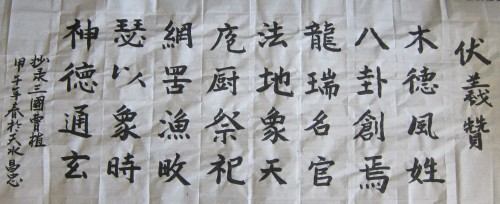 伏羲贊
木德風姓
八卦創焉
龍瑞名官
法地象天
庖厨祭祀
網罟漁畋
瑟以象時
神德通玄
抄录三國曹植
甲午年春於天水昌忠